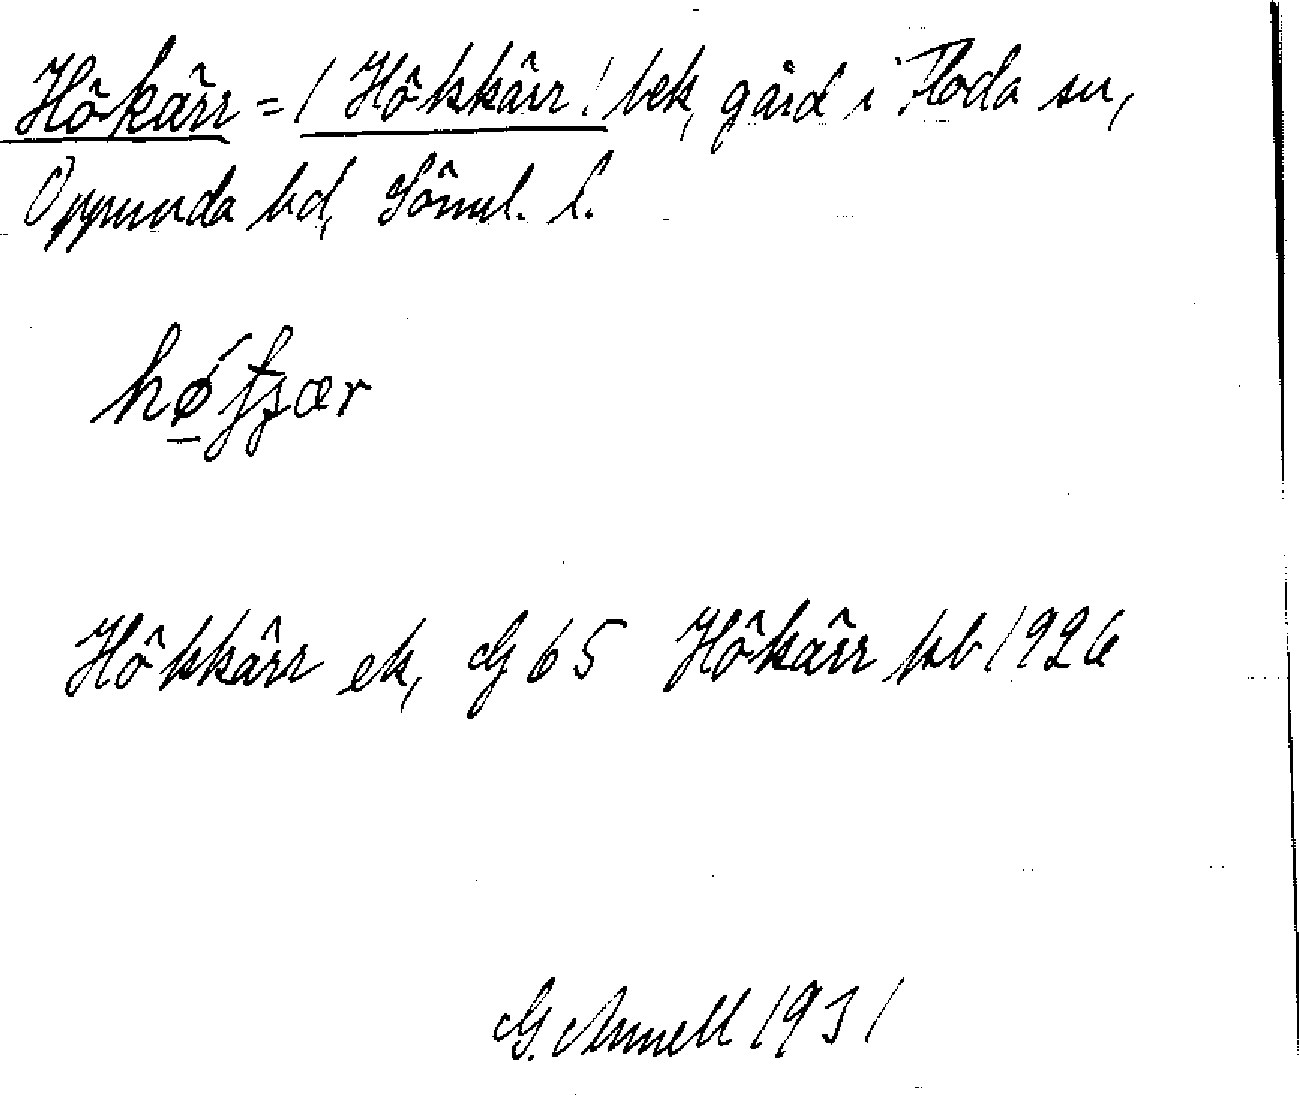 Hökärr = / Hökkärr / bek, gård i Floda sn,
Oppunda hd, Söml. l.
Hökkärr ek, G 65 Hökärr kb 1926
G. Annell 1931